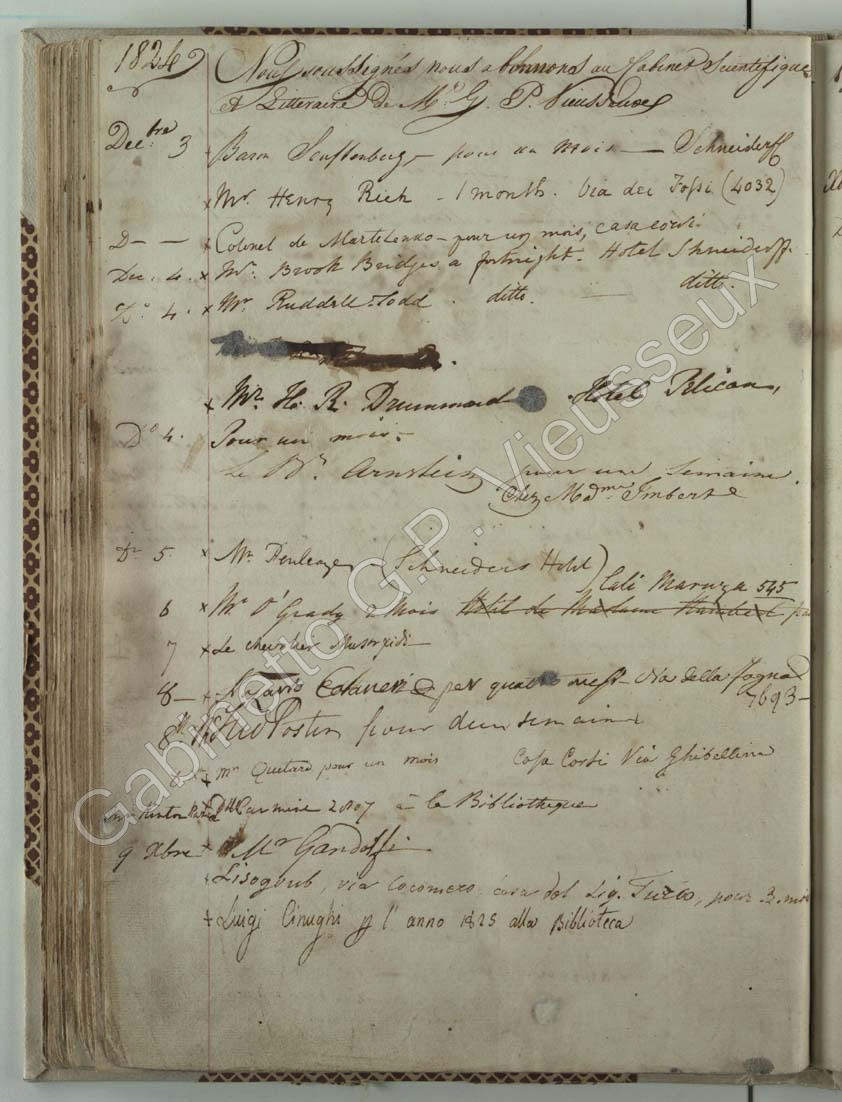 1824 Nous soussignés nous abbonnons au Cabinet Scientifique
et Litteraire de Mr. G. P. Vieusseux
Decbre. 3 Baron Senftenberg pour un mois — Schneiderff
Mr. Henry Rich - 1 month. Via dei Fossi (4032)
D— — Colonel de pour un mois, casa corsi
Dec. 4. Mr. Brook Bridges a fortnight. Hotel Schneiderff.
Do. 4. Mr. Ruddell Todd. ditto. — ditto.
Mr. H. R. Drummond Hotel Pelican,
Do 4. Pour un mois.
Le Bn. Arnstein pour une Semaine.
Chez Madme Imbert
Do 5. Mr. (Schneiders Hotel)
6 Mr. O'Grady 2 Mois Hotel de Madame Cali 545
7 Le chevalier Mustoxidi
8 — per quatro mesi — Via della fogna
7693 —
8 pour deux semaines
Mr Quitard pour un mois Casa Corsi Via Ghibellina
Del Carmine 2807 à la Bibliotheque
9 Xbre Mr Gandolfi
Lisogoub, via Cocomero, casa del Sig. , pour 3. mois
Luigi Cinughi p l'anno 1825 alla Biblioteca
Gabinetto G.P. Vieusseux